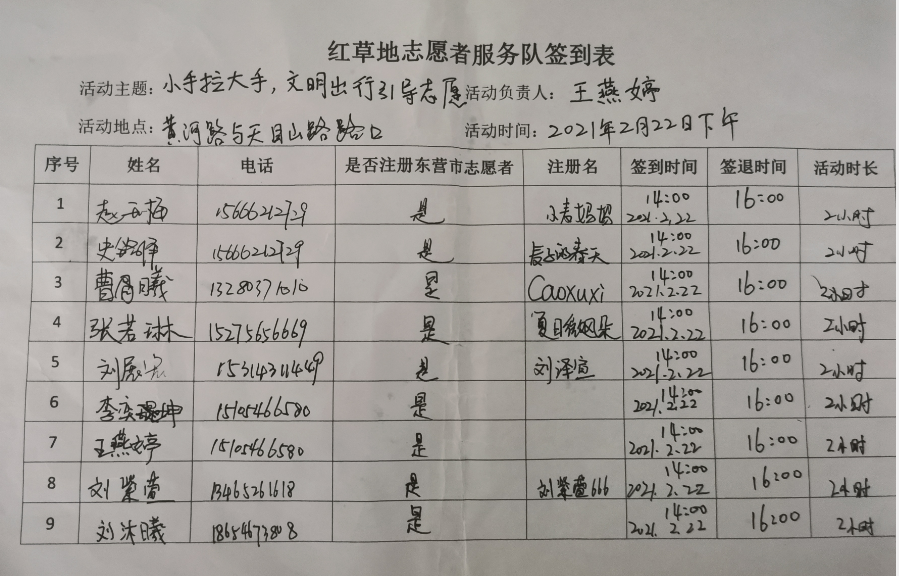 红草地志愿者服务队签到表
活动主题：小手拉大手，文明出行引导志愿 活动负责人：王燕婷
活动地点：黄河路与天目山路路口 活动时间：2021年2月22日下午
序号 姓名 电话 是否注册东营市志愿者 注册名 签到时间 签退时间 活动时长
1 赵 15666212729 是 妈妈 14:00 2021.2.22 16:00 2小时
2 史 15666212729 是 春天 14:00 2021.2.22 16:00 2小时
3 曹 曦 13280371010 是 Caoxuxi 14:00 2021.2.22 16:00 2小时
4 张若琳 15275656669 是 夏日微 朵 14:00 2021.2.22 16:00 2小时
5 刘 15314311449 是 刘泽宣 14:00 2021.2.22 16:00 2小时
6 李奕 坤 15105466580 是 14:00 2021.2.22 16:00 2小时
7 王燕婷 15105466580 是 14:00 2021.2.22 16:00 2小时
8 刘紫萱 13465261618 是 刘紫萱666 14:00 2021.2.22 16:00 2小时
9 刘沐曦 18654673808 是 14:00 2021.2.22 16:00 2小时